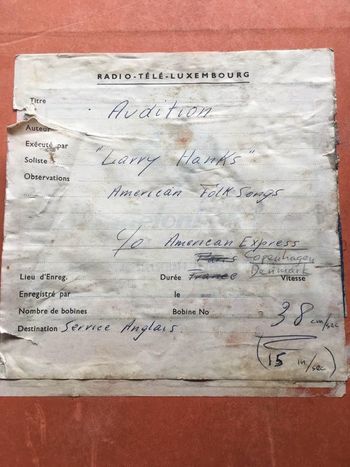 RADIO-TÉLÉ-LUXEMBOURG
Titre Audition
Auteur
Exécuté par "Larry Hanks"
Soliste
Observations American Folk Songs
c/o American Express
Paris Copenhagen
France Denmark
Lieu d'Enreg. Durée Vitesse
Enregistré par le
Nombre de bobines Bobine No 38 cm/sec
Destination Service Anglais
(15 in/sec)